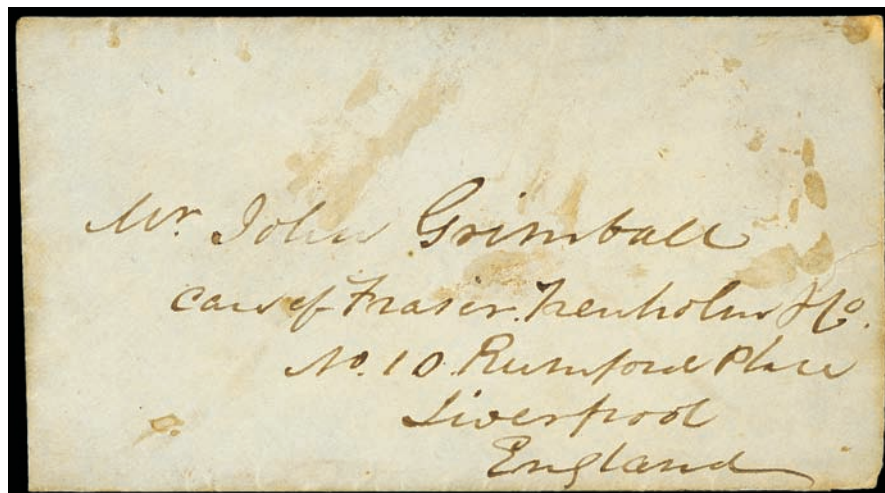 Mr. John Grimball
Care of Fraser. Trenholm & Co.
No. 10. Rumford Place
Liverpool
England